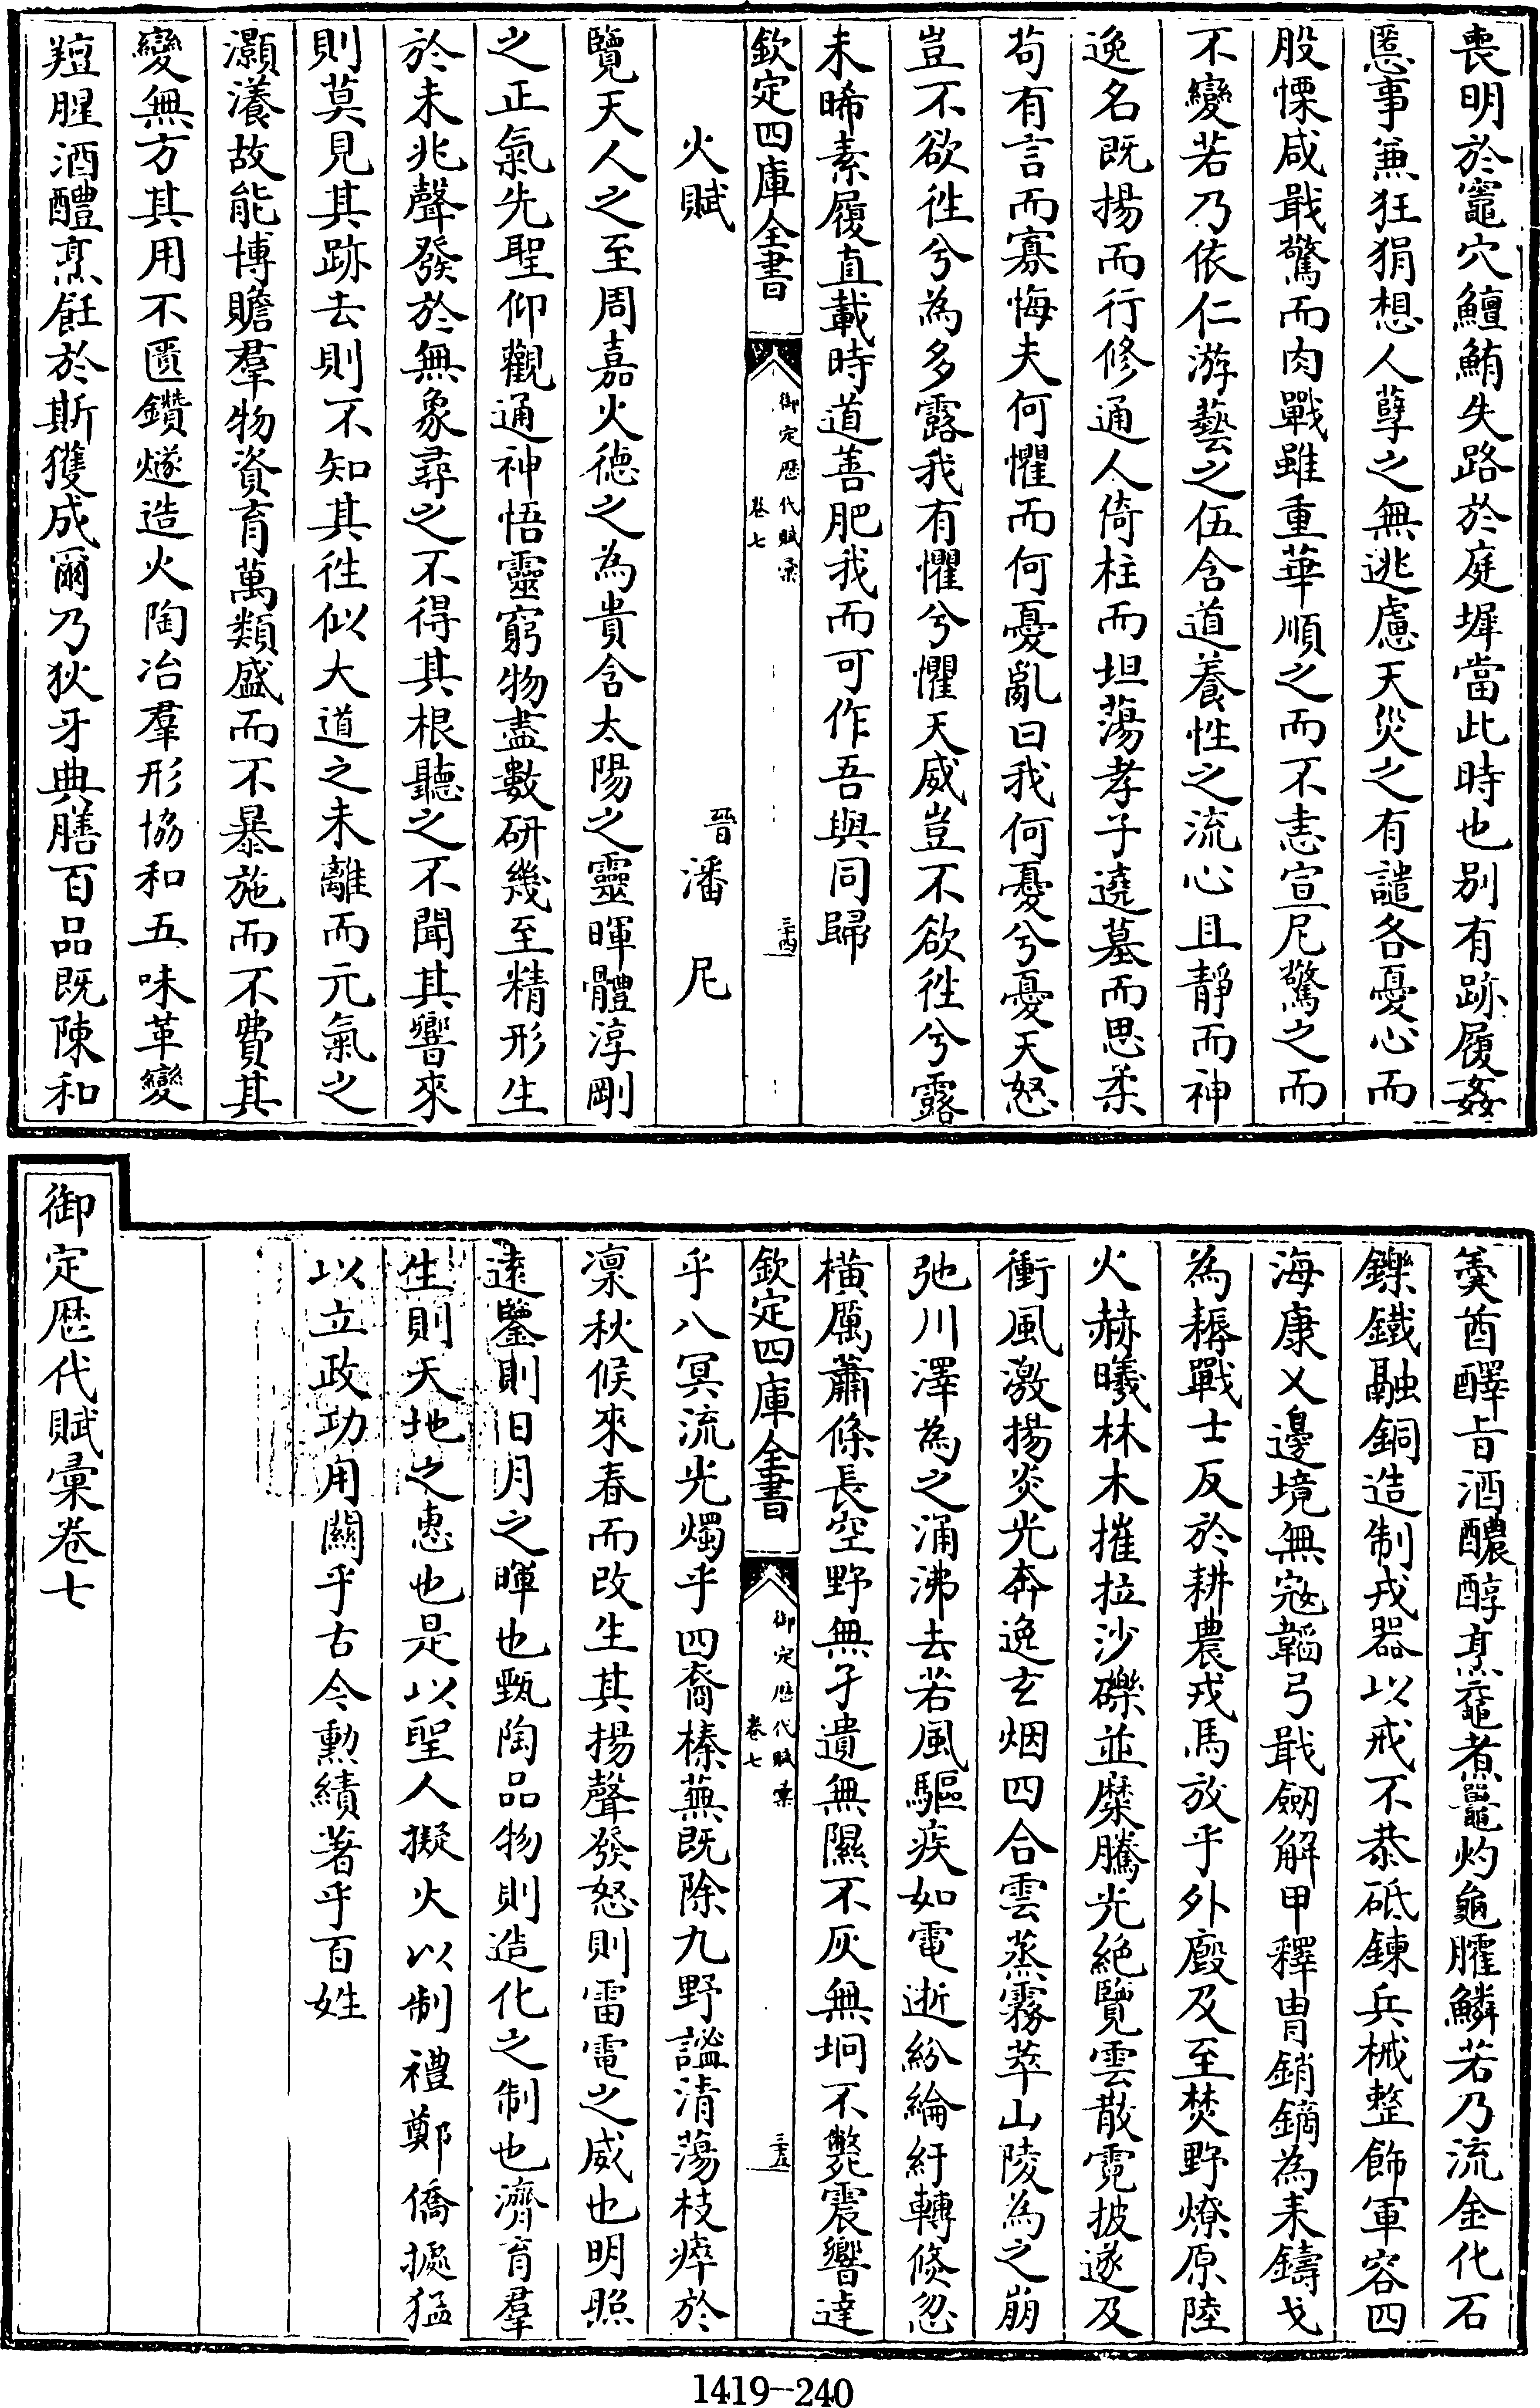 喪明於竈穴鱣鮪失路於庭墀當此時也别有跡履姦
慝事兼狂狷想人孽之無逃慮天災之有譴各憂心而
股慄咸戢驚而肉戰雖重華順之而不恚宣尼驚之而
不變若乃依仁游藝之伍含道養性之流心且靜而神
逸名既揚而行修通人倚柱而坦蕩孝子遶墓而思柔
茍有言而寡悔夫何懼而何憂亂曰我何憂兮憂天怒
豈不欲徃兮為多露我有懼兮懼天威豈不欲徃兮露
未晞素履直載時道善肥我而可作吾與同歸
欽定四庫全書
御定歷代賦彙
卷七
三十四
火賦
晉潘尼
覽天人之至周嘉火德之為貴含太陽之靈暉體淳剛
之正氣先聖仰觀通神悟靈窮物盡數研幾至精形生
於未兆聲發於無象尋之不得其根聽之不聞其響來
則莫見其跡去則不知其徃似大道之未離而元氣之
灝瀁故能博贍羣物資育萬類盛而不暴施而不費其
變無方其用不匱鑽燧造火陶冶羣形協和五味革變
羶腥酒醴烹飪於斯獲成爾乃狄牙典膳百品既陳和
羹酋醳旨酒醲醇烹黿煮鼉灼龜臛鱗若乃流金化石
鑠鐵融銅造制戎器以戒不恭砥鍊兵械整飾軍容四
海康乂邊境無宼韜弓戢劒解甲釋胄銷鏑為耒鑄戈
為耨戰士反於耕農戎馬放乎外廄及至焚野燎原陸
火赫曦林木摧拉沙礫並糜騰光絶覽雲散霓披遂及
衝風激揚炎光奔逸玄烟四合雲蒸霧萃山陵為之崩
弛川澤為之涌沸去若風驅疾如電逝紛綸紆轉倐忽
橫厲蕭條長空野無孑遺無隰不灰無坰不斃震響達
欽定四庫全書
御定歷代賦彙
卷七
三十五
乎八冥流光燭乎四裔榛蕪既除九野謐清蕩枝瘁於
凜秋候來春而改生其揚聲發怒則雷電之威也明照
遠鑒則日月之暉也甄陶品物則造化之制也濟育羣
生則天地之惠也是以聖人擬火以制禮鄭僑據猛
以立政功用關乎古今勲績著乎百姓
御定歷代賦彙卷七
1419-240